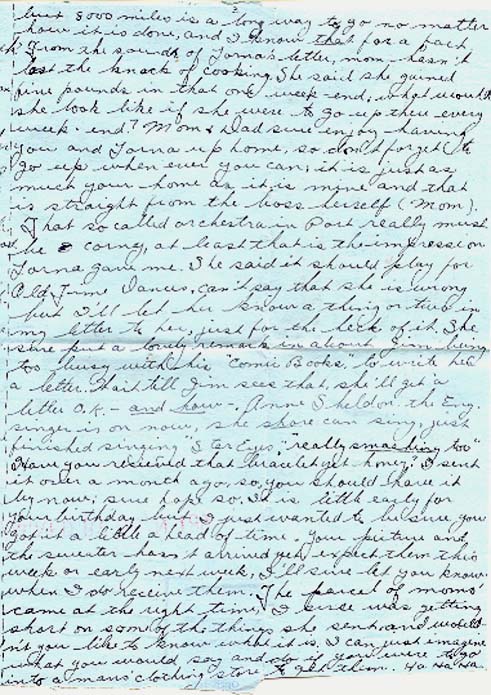 but 8000 miles is a long way to go no matter
how it is done, and I know that for a fact.
From the sound of Lorna's letter, mom hasn't
lost the knack of cooking. She said she gained
five pounds in that one week-end, what would
she look like if she were to go up there every
week-end? Mom & Dad sure enjoy having
you and Lorna up home, so don't forget to
go up when ever you can, it is just as
much your home as it is mine and that
is straight from the boss herself (Mom).
That so called orchestra in Port really must
be corny, at least that is the impression
Lorna gave me. She said it should play for
Old Time Dances, can't say that she is wrong
but I'll let her know a thing or two in
my letter to her, just for the heck of it. She
sure put a lovely remark in about Jim being
too busy with his "Comic Books" to write her
a letter. Wait till Jim sees that, she'll get a
letter O.K. - and how -. Anne Sheldon the Eng.
singer is on now, she shore can sing, just
finished singing "Star Eyes," "really smashing too"
Have you recieved that bracelet yet honey? I sent
it over a month ago, so, you should have it
by now, sure hope so. It is little early for
your birthday but I just wanted to be sure you
got it a little ahead of time. Your picture and
the sweater hasn't arrived yet, expect them this
week or early next week, I'll sure let you know
when I do receive them. The parcel of moms
came at the right time, I sure was getting
short on some of the things she sent and would-
n't you like to know what it is, I can just imagine
what you would say and do if you were to go
into a mans clothing store & get them. Ha. Ha. Ha.